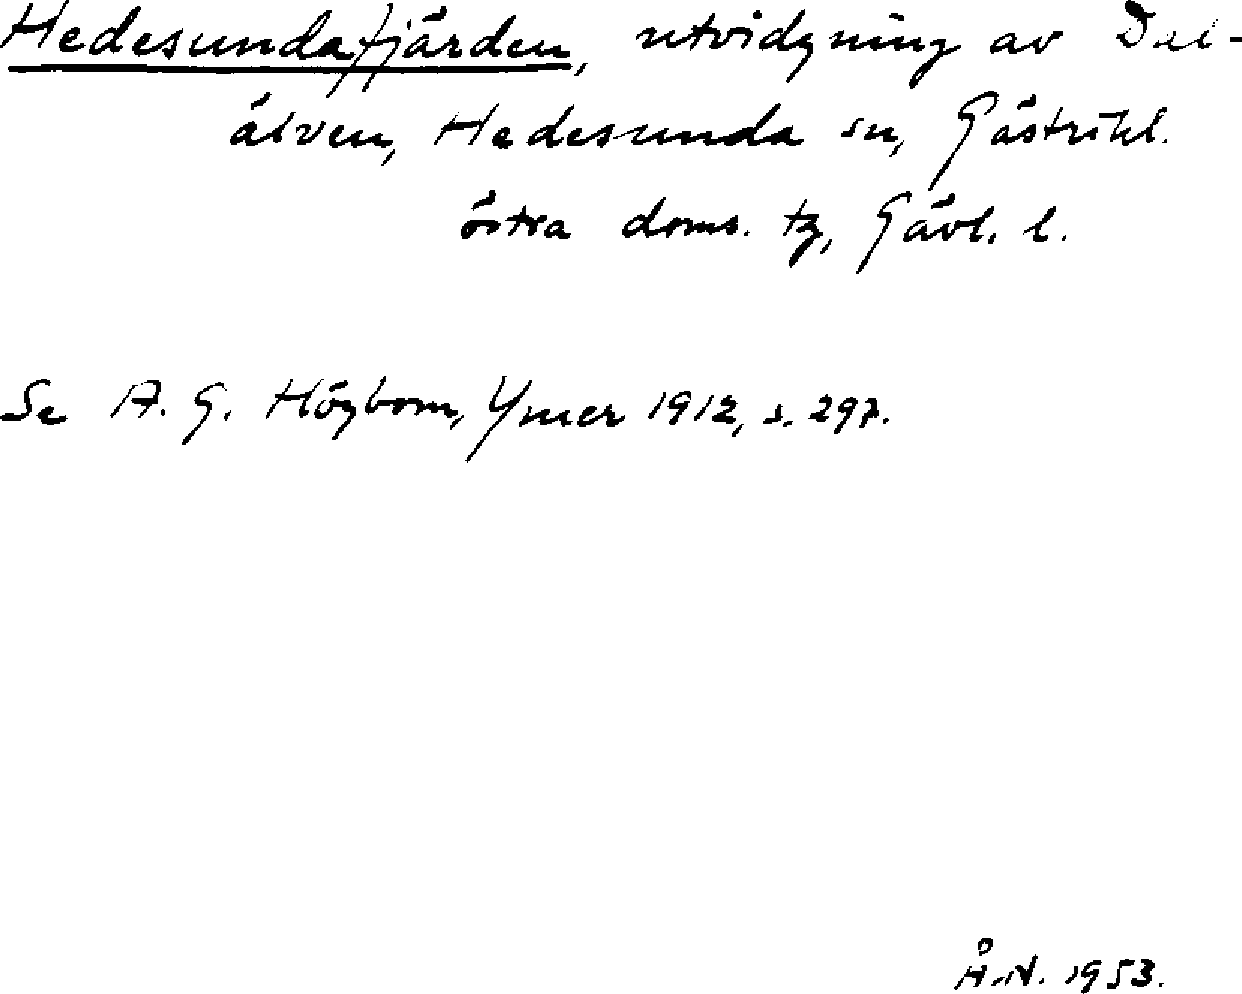 Hedesundafjärden, utvidgning av Dal-
älven, Hedesunda sn, Gästrikl.
östra doms. tg, Gävl. l.
Se A. G. Högbom, Ymer 1912, s. 297.
Å.N. 1953.